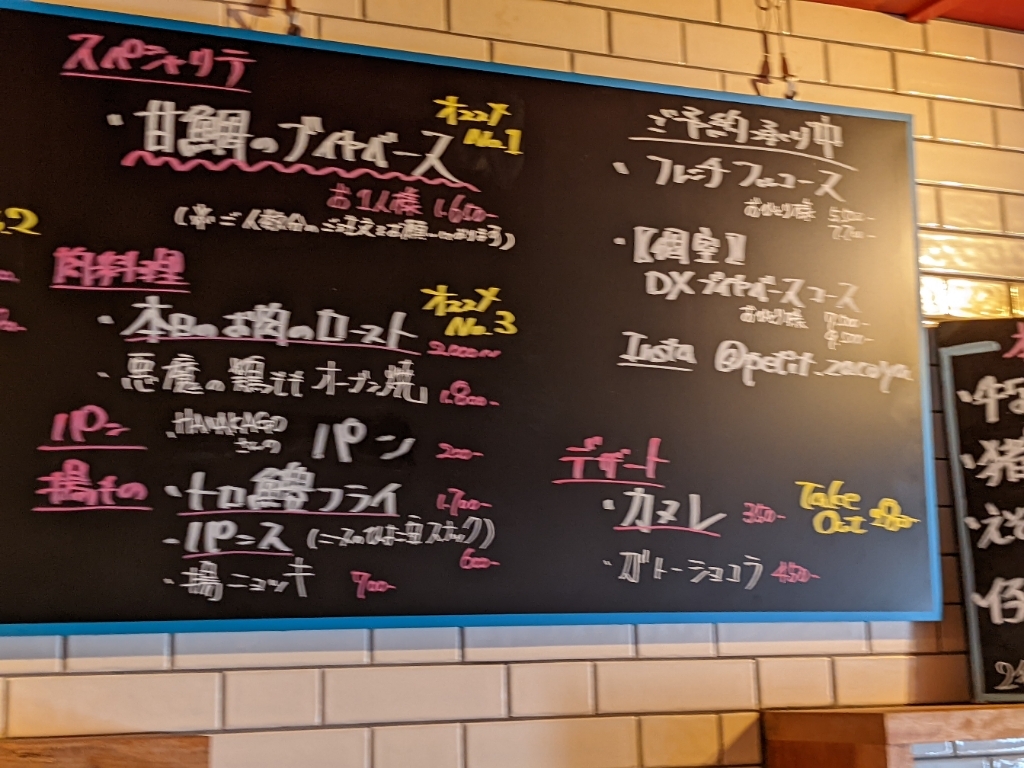 スペシャリテ
・甘鯛のブイヤベース
オススメ
No.1
お1人様 1,650-
(※ご人数分のご注文をお願いしております)
肉料理
・本日のお肉のロースト
オススメ
No.3
2,000〜
・悪魔の鶏ももオーブン焼 1,800-
パン
・HANAKAGO
さんの
パン 200-
揚もの
・トロ鰺フライ 1,700-
・パニス (ニースのひよこ豆スナック)
600-
・揚ニョッキ 700-
ご予約承り中
・フレンチフルコース
お1人様
・【個室】
DXブイヤベースコース
お1人様
Insta @petit.zacoya
デザート
・カヌレ 350-
Take
Out
・ガトーショコラ 450-